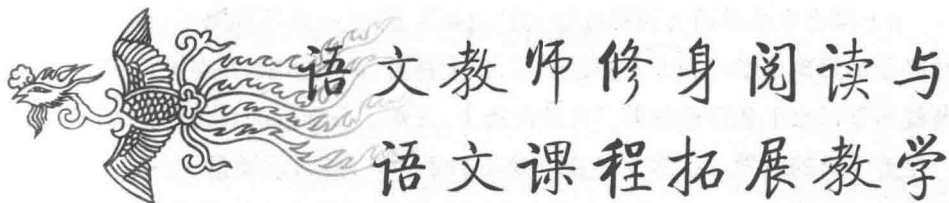 语文教师修身阅读与
语文课程拓展教学